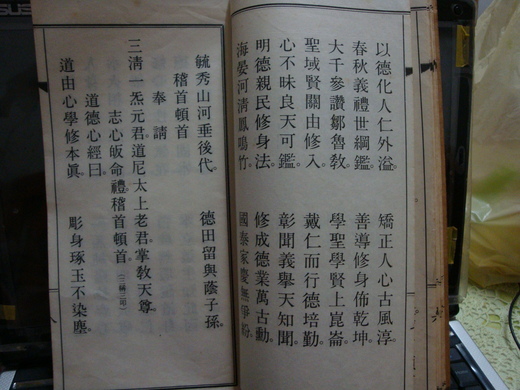 以德化人仁外溢。 矯正人心古風淳。
春秋義禮世綱鑑。 善導修身佈乾坤。
大千參讚鄒魯教。 學聖學賢上崑崙。
聖域賢關由修入。 戴仁而行德培勤。
心不昧良天可鑑。 彰聞義舉天知聞。
明德親民修身法。 修成德業萬古勳。
海晏河清鳳鳴竹。 國泰家慶無爭紛。
毓秀山河垂後代。 德田留與蔭子孫。
稽首頓首
奉請
三清一炁元君道尼太上老君。掌教天尊。
志心皈命禮。稽首頓首。(三稱三叩)
道德心經曰。
道由心學修本眞。 彫身琢玉不染塵。